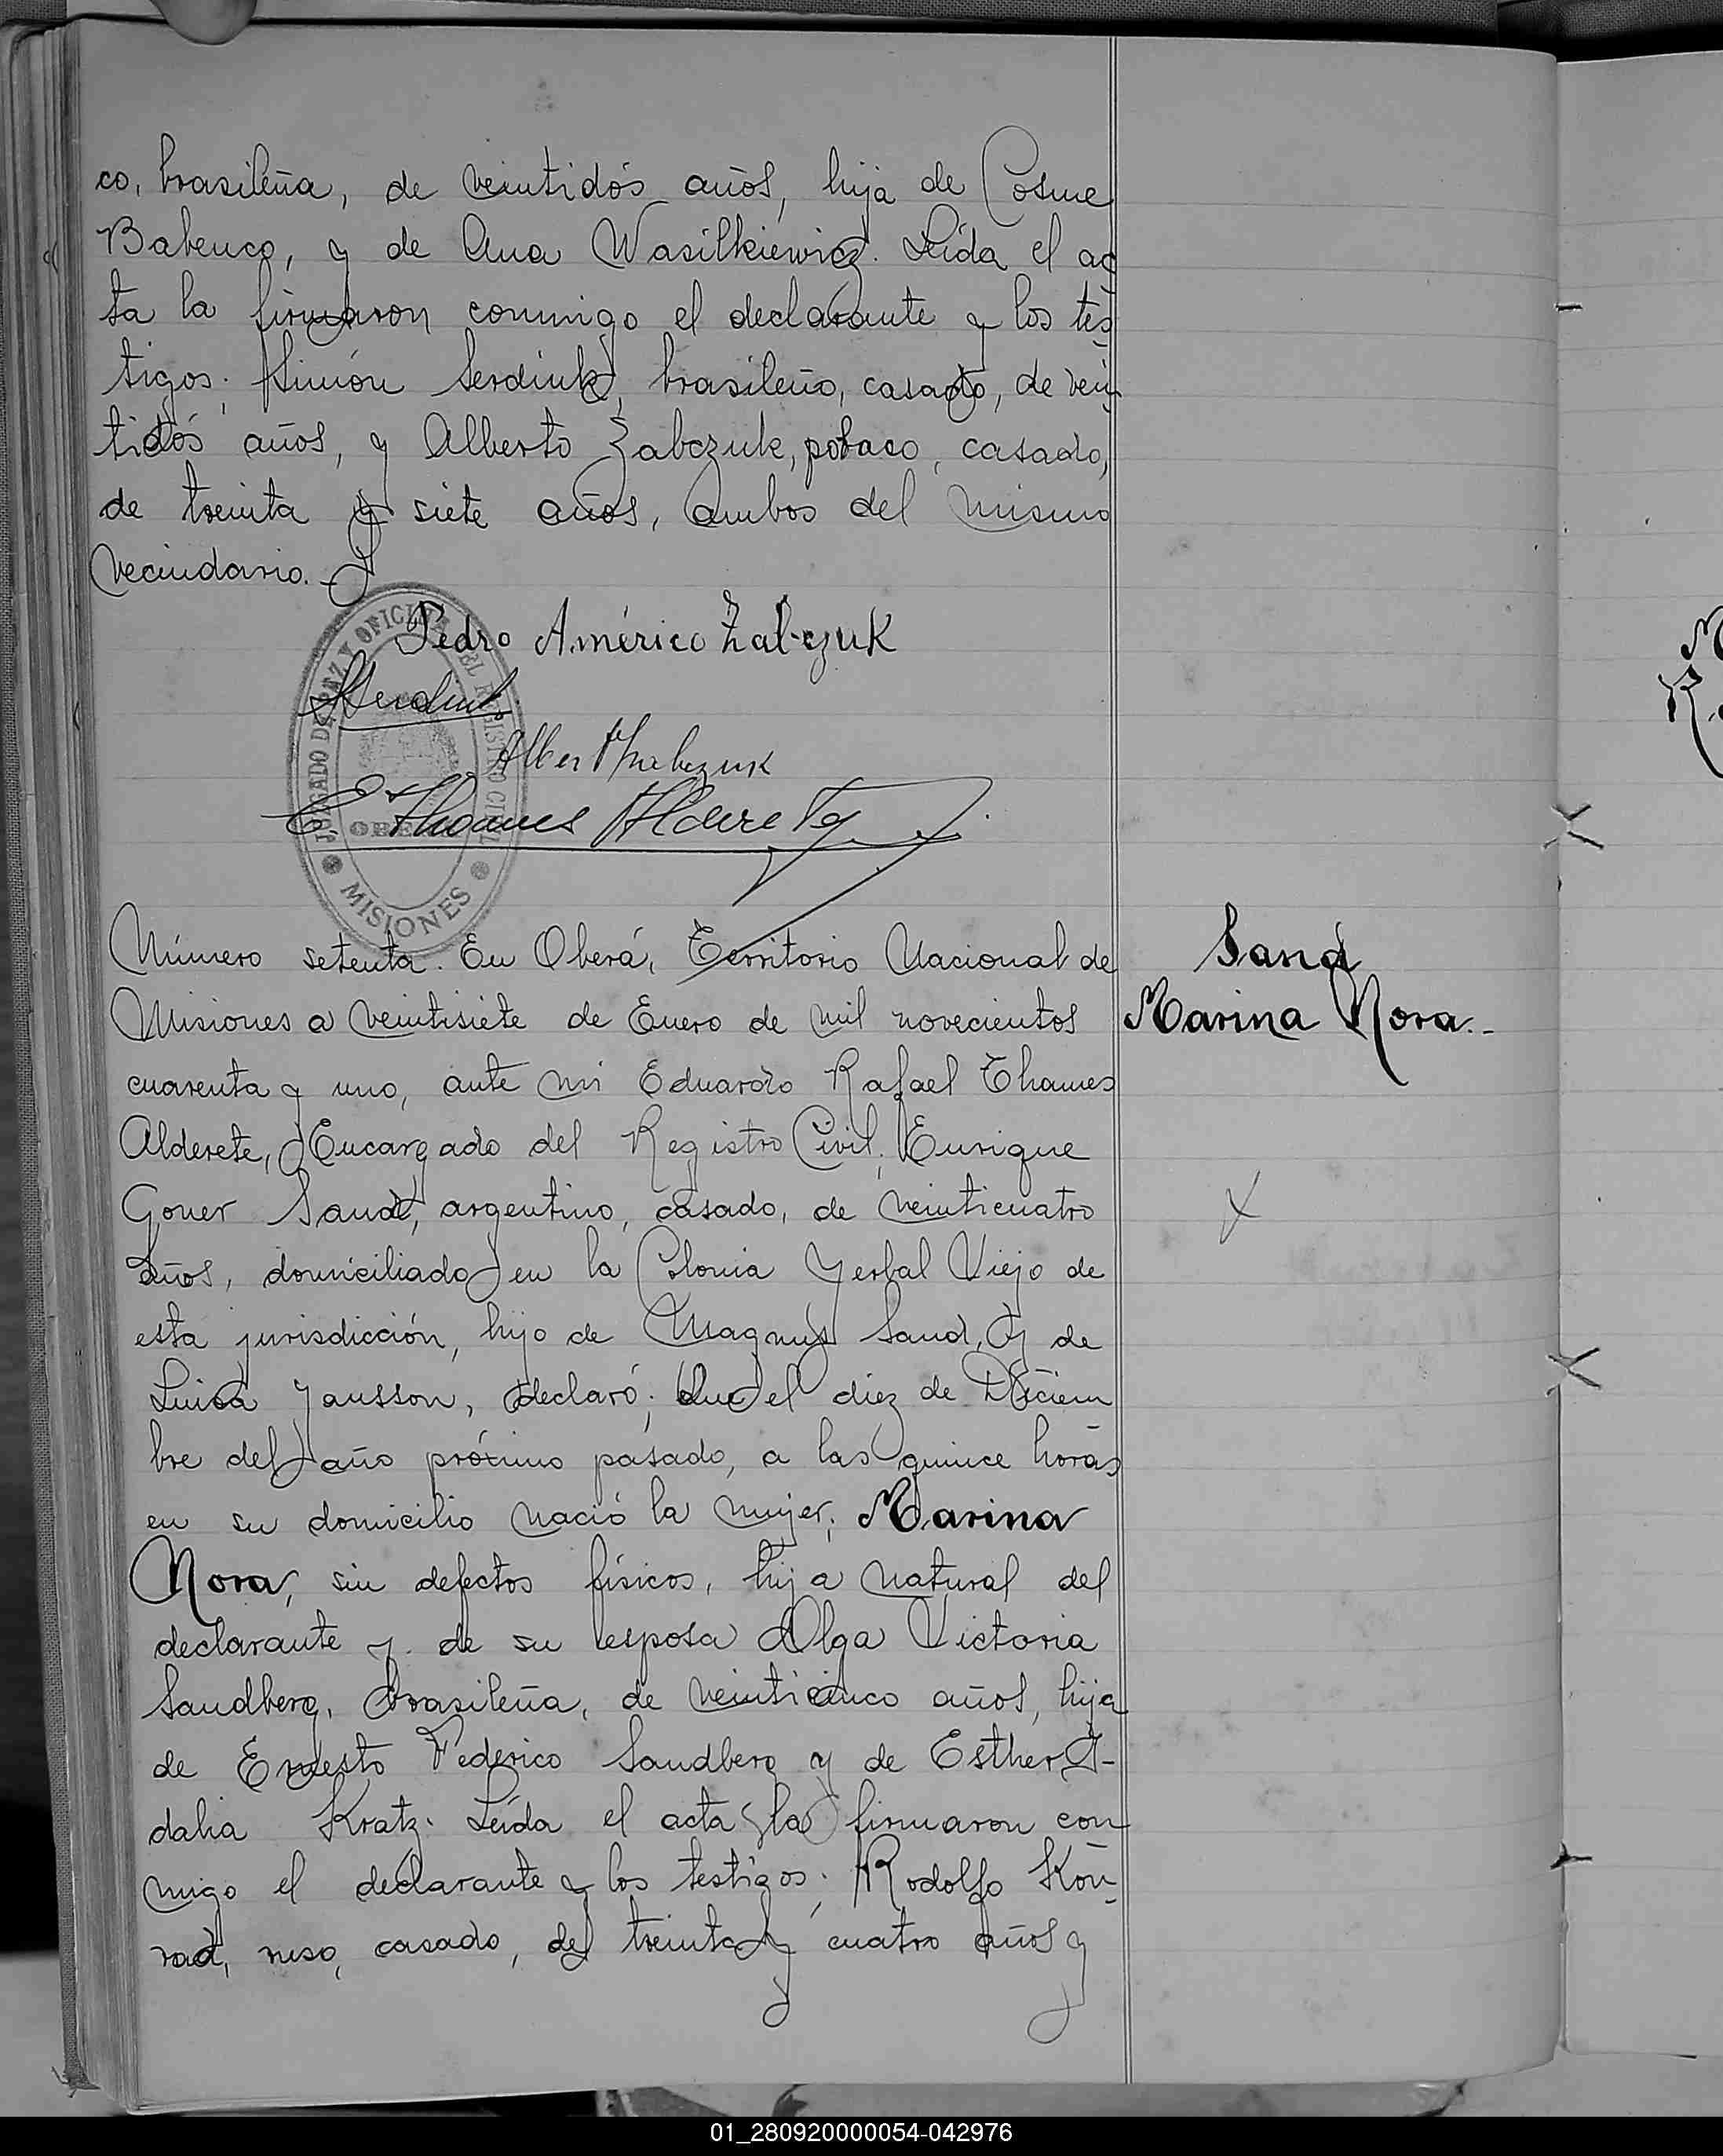 co, brasileña, de veintidós años, hija de Cosme
Babenco, y de Ana Wasilkiewicz. Leída el ac
ta la firmaron conmigo el declarante y los tes
tigos: Simón Serdiuk, brasileño, casado, de vein
tidós años, y Alberto Zabczuk, polaco, casado,
de treinta y siete años, ambos del mismo
vecindario.-
Pedro Américo Zabczuk
Serdiuk
Albert Zabczuk
E. Thames Alderete
JUZGADO DE PAZ Y OFICINA DEL REGISTRO CIVIL
OBERÁ
MISIONES
Número setenta. En Oberá, Territorio Nacional de
Misiones a veintisiete de Enero de mil novecientos
cuarenta y uno, ante mi Eduardo Rafael Thames
Alderete, Encargado del Registro Civil, Enrique
Goner Sand, argentino, casado, de veinticuatro
años, domiciliado en la Colonia Yerbal Viejo de
esta jurisdicción, hijo de Magnus Sand, y de
Luisa Jansson, declaró; Que el diez de Diciem
bre del año próximo pasado, a las quince horas
en su domicilio nació la mujer; Marina
Nora, sin defectos físicos, hija natural del
declarante y de su esposa Olga Victoria
Sandberg, brasileña, de veinticinco años, hija
de Ernesto Federico Sandberg y de Esther I-
dalia Kratz. Leída el acta la firmaron con
migo el declarante y los testigos: Rodolfo Kon-
rad, ruso, casado, de treinta y cuatro años y
Sand
Marina Nora.-
01_280920000054-042976